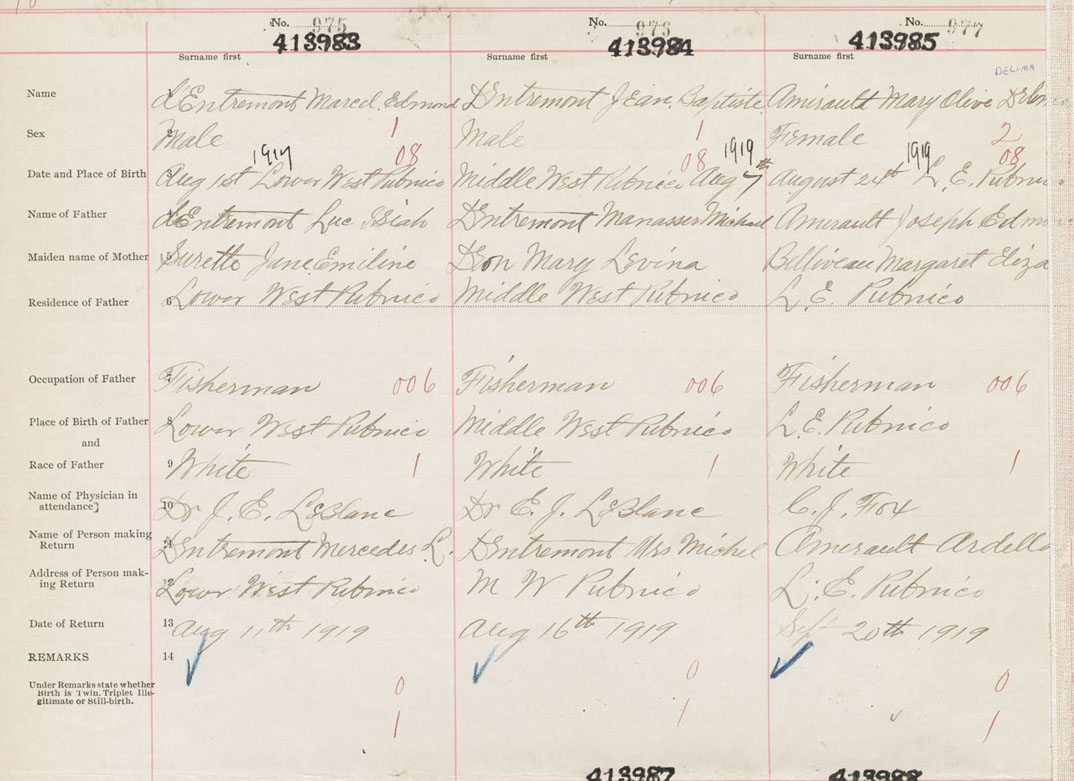 No. 975 No. 976 No. 977
413983 413984 413985
Surname first Surname first Surname first
DELIMA
Name d'Entremont Marcel Edmond D'Entremont Jean Baptiste Amirault Mary Olive
Sex 2 Male 1 Male 1 Female 2
1919 08 08 1919 1919 08
Date and Place of Birth 3 Aug 1st Lower West Pubnico Middle West Pubnico Aug 7th August 24th L. E. Pubnico
Name of Father d'Entremont Luc Isiah D'Entremont Manasser Michael Amirault Joseph
Maiden name of Mother 5 Surette Jane Emiline DEon Mary Levina Belliveau Margaret Eliza
Residence of Father 6 Lower West Pubnico Middle West Pubnico L. E. Pubnico
Occupation of Father 7 Fisherman 006 Fisherman 006 Fisherman 006
Place of Birth of Father 8 Lower West Pubnico Middle West Pubnico L. E. Pubnico
and
Race of Father 9 White 1 White 1 White 1
Name of Physician in
attendance 10 Dr J. E. LeBlanc Dr E. J. LeBlanc C. J. Fox
Name of Person making
Return 11 D'Entremont Mercedes L. D'Entremont Mrs Michel Amirault Ardella
Address of Person mak-
ing Return 12 Lower West Pubnico M W Pubnico L. E. Pubnico
Date of Return 13 Aug 11th 1919 Aug 16th 1919 Sept 20th 1919
REMARKS 14
Under Remarks state whether
Birth is Twin, Triplet Ille-
gitimate or Still-birth.
0 0 0
1 1 1
413987 413988